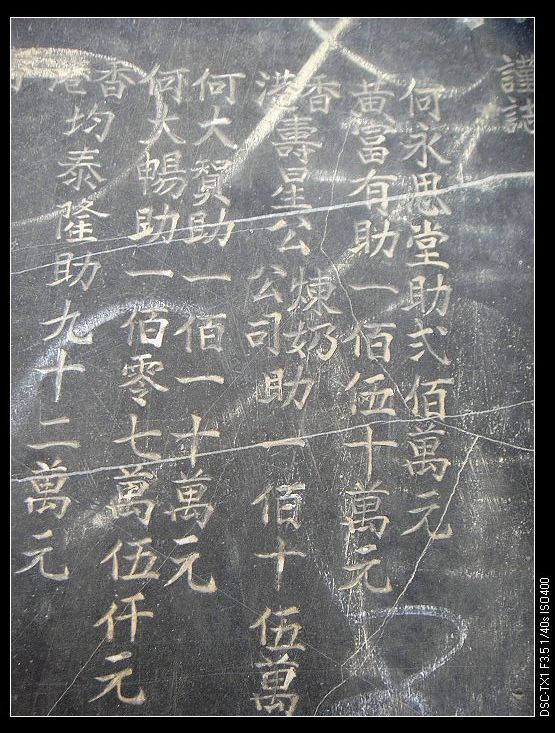 謹誌
何永思堂助弍佰萬元
黃富有助一佰伍十萬元
香港壽星公煉奶公司助一佰十伍萬
何大賀助一佰一十萬元
何大暢助一佰零七萬伍仟元
香港均泰隆助九十二萬元
DSC-TX1 F3.5 1/40s ISO400